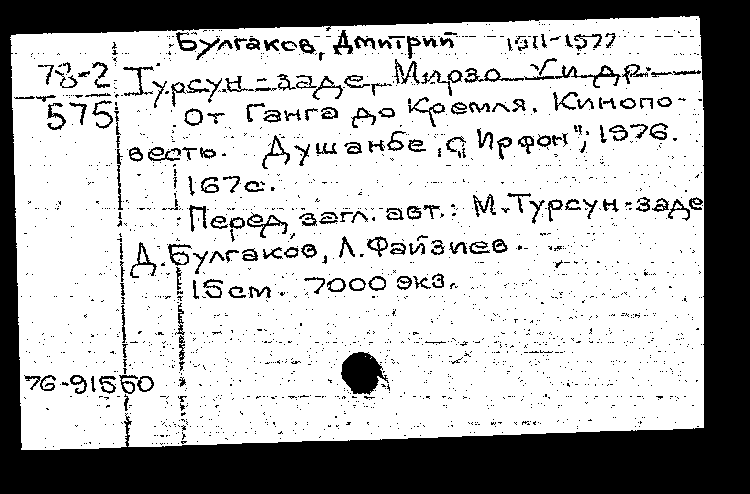 Булгаков, Дмитрий 1911-1977
78-2
575
Турсун-заде, Мирзо и др.
От Ганга до Кремля. Кинопо-
весть. Душанбе, "Ирфон", 1976.
167с.
Перед загл. авт.: М.Турсун-заде
Д.Булгаков, Л.Файзиев.
15см. 7000 экз.
76-91550